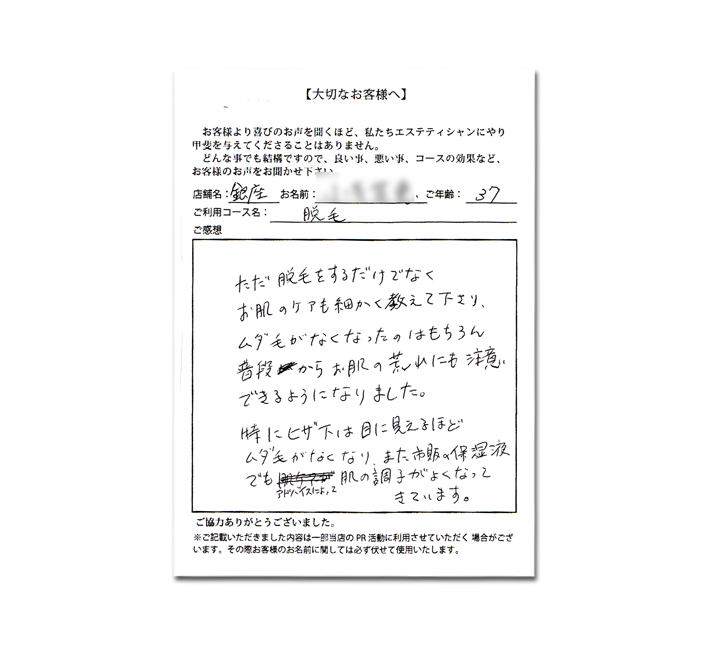 【大切なお客様へ】
お客様より喜びのお声を聞くほど、私たちエステティシャンにやり
甲斐を与えてくださることはありません。
どんな事でも結構ですので、良い事、悪い事、コースの効果など、
お客様のお声をお聞かせ下さい
店舗名：銀座 お名前： 、ご年齢：37
ご利用コース名：脱毛
ご感想
ただ脱毛をするだけでなく
お肌のケアも細かく教えて下さり、
ムダ毛がなくなったのはもちろん
普段からお肌の荒れにも注意
できるようになりました。
特にヒザ下は目に見えるほど
ムダ毛がなくなり、また市販の保湿液
でも 肌の調子がよくなって
アドバイスによって
きています。
ご協力ありがとうございました。
※ご記載いただきました内容は一部当店の PR 活動に利用させていただく 場合がござ
います。その際お客様のお名前に関しては必ず伏せて使用いたします。